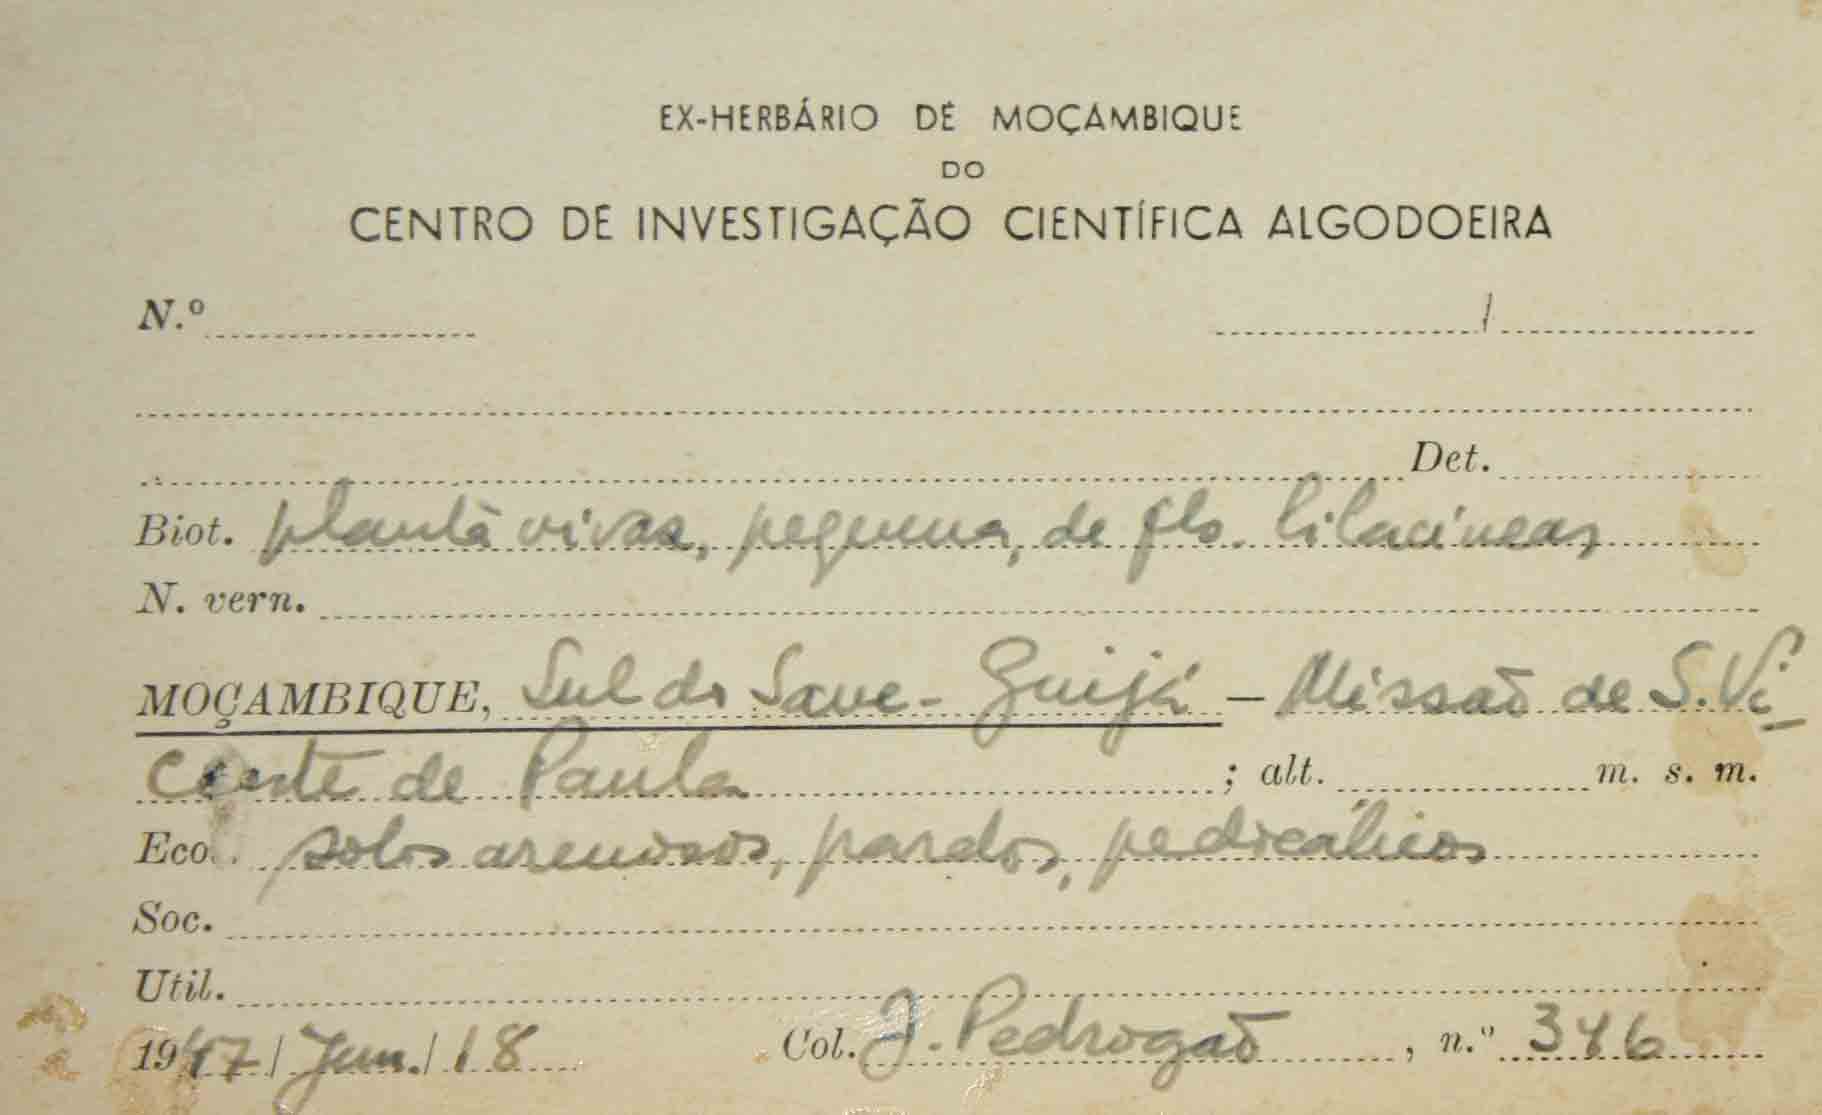 EX-HERBÁRIO DE MOÇAMBIQUE
DO
CENTRO DE INVESTIGAÇÃO CIENTÍFICA ALGODOEIRA
N.º /
Det.
Biot. planta vivaz, pequena, de fls. lilacíneas
N. vern.
MOÇAMBIQUE, Sul do Save - Guijá - Missão de S. Vi-
cente de Paula ; alt. m. s. m.
Eco. solos arenosos, pardos,
Soc.
Util.
1947/Jun./18 Col. J. Pedrogão, n.º 346